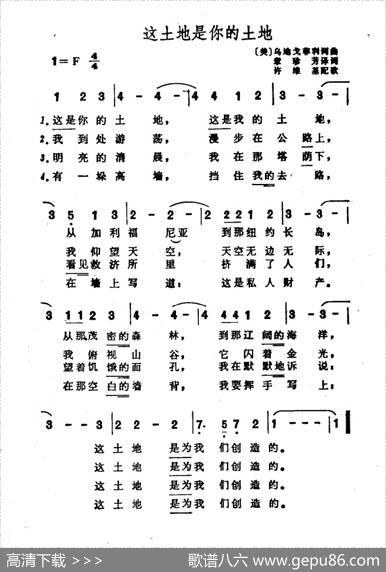 这土地是你的土地
1=F 4/4
〔美〕乌地戈菲利词曲
章珍芳译词
许维基配歌
1 2 3 4 - 4 - 1 2 3 3 - 3 -
1.这是你的土地， 这是我的土地，
2.我到处游荡， 漫步在公路上，
3.明亮的清晨， 我在那塔荫下，
4.有一垛高墙， 挡住我的去路，
3 5 1 3 2 - 2 - 2 1 2 3 - 3 -
从加利福尼亚 到那纽约长岛，
我仰望天空； 天空无边无际，
看见救济所里 挤满了人们，
在墙上写道： 这是私人财产。
从那茂密的森林， 到那辽阔的海洋，
我俯视山谷， 它闪着金光，
望着饥饿的面孔， 我在默默地诉说：
在那空白的墙背， 我要挥手写上：
这土地 是为我们创造的。
这土地 是为我们创造的。
这土地 是为我们创造的。
这土地 是为我们创造的。
高清下载 >>>
歌谱八六 www.gepu86.com